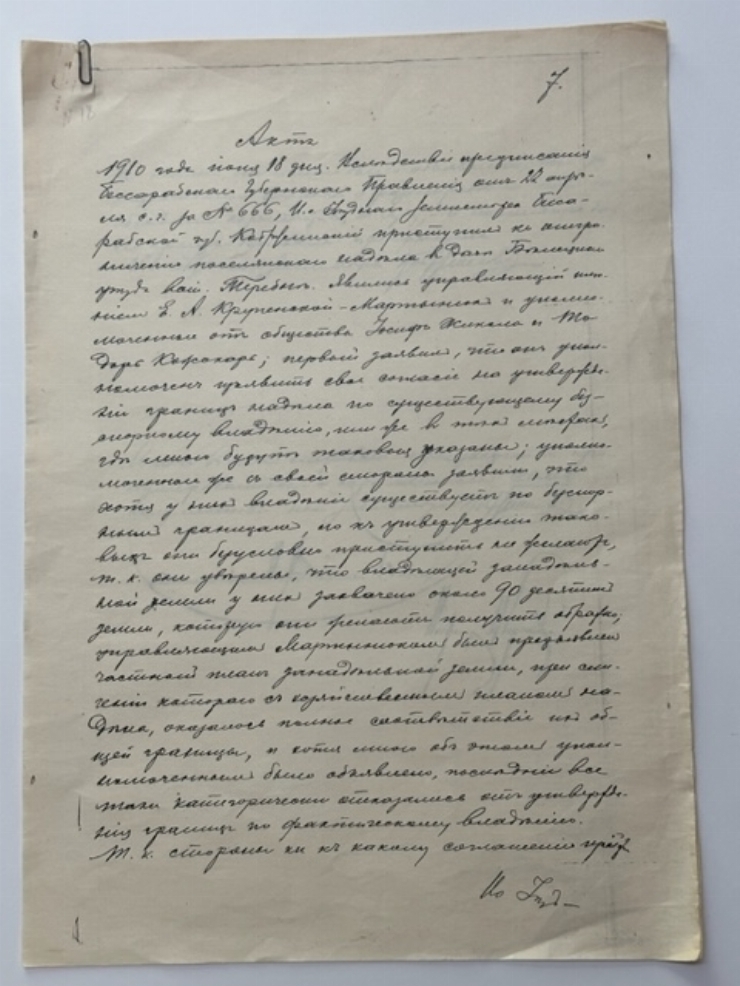 7.
Актъ
1910 года іюня 18 дня. Вслѣдствіе предписанія
Бессарабскаго Губернскаго Правленія отъ 22 апрѣ-
ля с. г. за № 666, И. о. Уѣзднаго Землемѣра Бесса-
рабской губ. приступилъ къ отгра-
ниченію поселянскаго надѣла въ дачѣ
уѣзда вот. Теребна. Явились управляющій имѣ-
ніемъ Е. А. Крупенской - Мартынюкъ и уполно-
моченные отъ общества Іосифъ и То-
деръ Кожокарь; первый заявилъ, что онъ упол-
номоченъ изъявить свое согласіе на утвержде-
ніе границъ надѣла по существующему без-
спорному владѣнію, или же въ тѣхъ мѣстахъ,
гдѣ мною будутъ таковыя указаны; уполно-
моченные же съ своей стороны заявили, что
хотя у нихъ владѣніе существуетъ по безспор-
нымъ границамъ, но къ утвержденію тако-
выхъ они безусловно приступить не желаютъ,
т. к. они увѣрены, что владѣльцемъ занадѣль-
ной земли у нихъ захвачено около 90 десятинъ
земли, которую они желаютъ получить обратно;
управляющимъ Мартынюкомъ былъ предъявленъ
частный планъ занадѣльной земли, при сли-
ченіи котораго съ хозяйственнымъ планомъ на-
дѣла, оказалось полное соотвѣтствіе ихъ об-
щей границы, и хотя мною объ этомъ упол-
номоченнымъ было объявлено, послѣдніе все
таки категорически отказались отъ утвержде-
нія границъ по фактическому владѣнію.
Т. к. стороны ни къ какому соглашенію